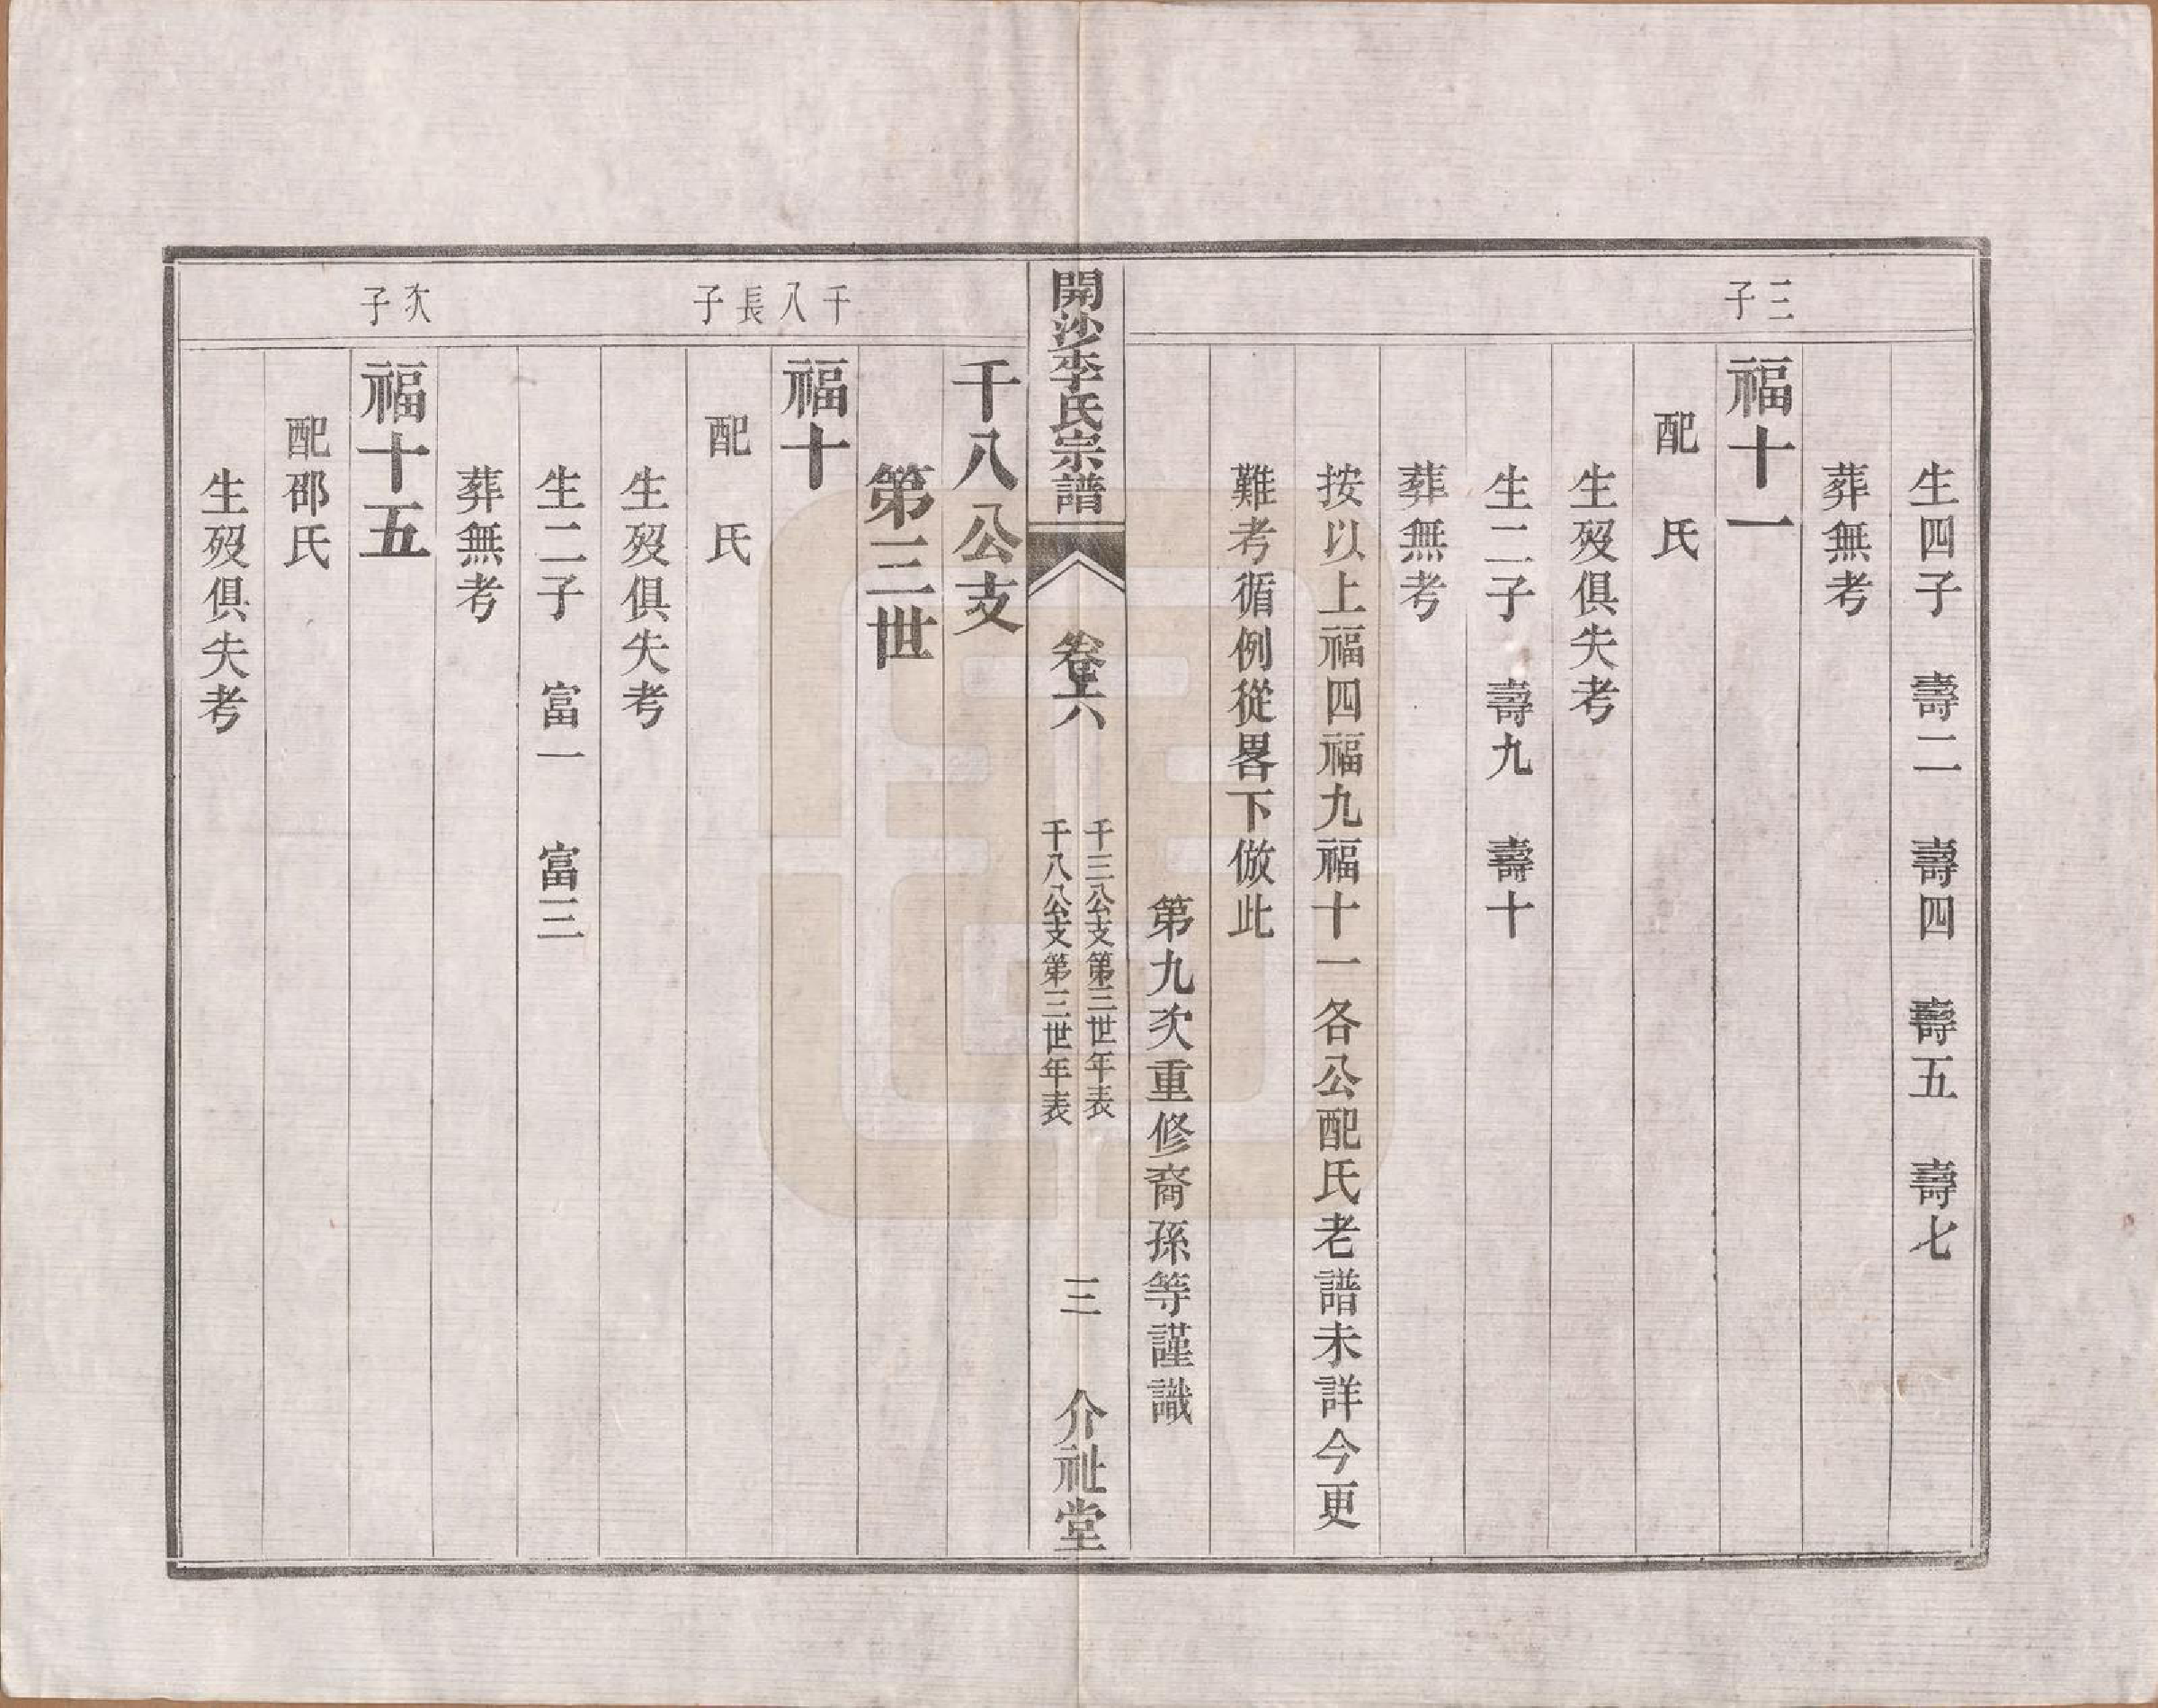 生四子　壽二　壽四　壽五　壽七
葬無考
三子
福十一
配　氏
生歿俱失考
生二子　壽九　壽十
葬無考
按以上福四福九福十一各公配氏老譜未詳今更
難考循例從畧下倣此
第九次重修裔孫等謹識
開沙李氏宗譜
卷六
千三公支第三世年表
千八公支第三世年表
三
介祉堂
千八公支
第三世
千八長子
福十
配　氏
生歿俱失考
生二子　富一　富三
葬無考
次子
福十五
配邵氏
生歿俱失考